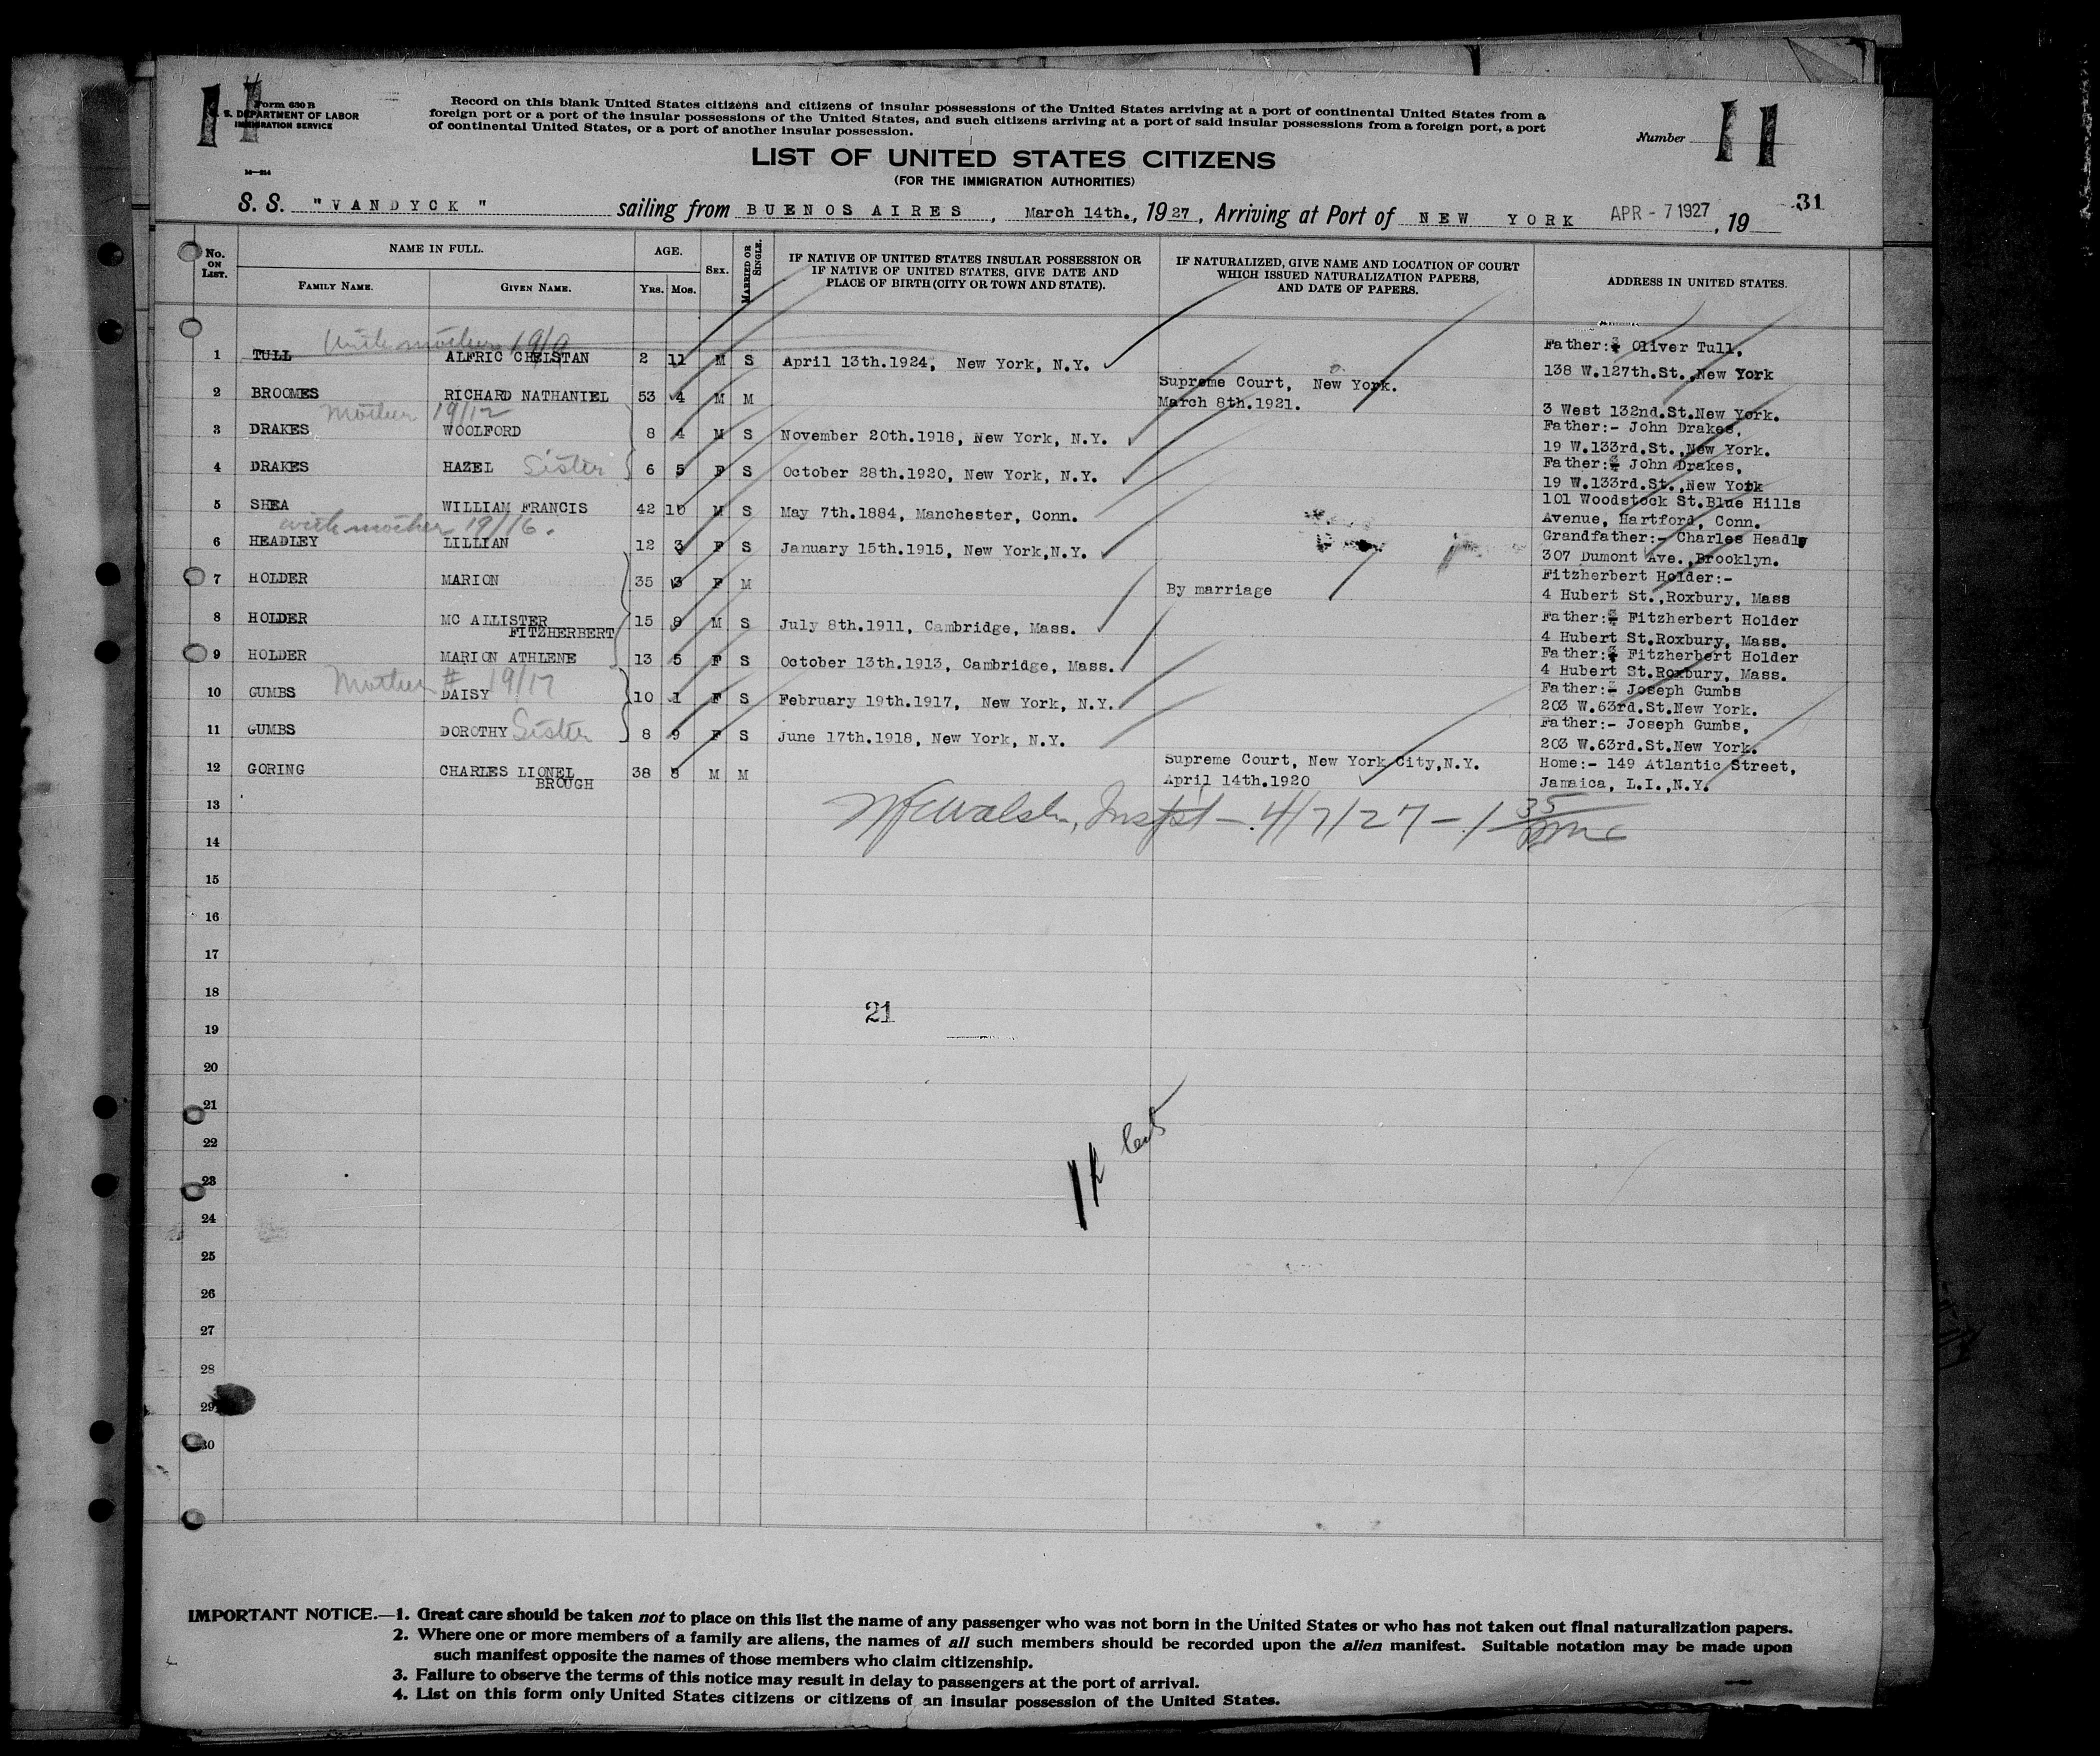 11
Form 630 B
U. S. DEPARTMENT OF LABOR
IMMIGRATION SERVICE
14—214
Record on this blank United States citizens and citizens of insular possessions of the United States arriving at a port of continental United States from a
foreign port or a port of the insular possessions of the United States, and such citizens arriving at a port of said insular possessions from a foreign port, a port
of continental United States, or a port of another insular possession.
Number 11
LIST OF UNITED STATES CITIZENS
(FOR THE IMMIGRATION AUTHORITIES)
31
S. S. "VANDYCK" sailing from BUENOS AIRES, March 14th., 1927, Arriving at Port of NEW YORK APR - 7 1927, 19
No. ON LIST. NAME IN FULL. FAMILY NAME. GIVEN NAME. AGE. YRS. MOS. SEX. MARRIED OR SINGLE. IF NATIVE OF UNITED STATES INSULAR POSSESSION OR IF NATIVE OF UNITED STATES, GIVE DATE AND PLACE OF BIRTH (CITY OR TOWN AND STATE). IF NATURALIZED, GIVE NAME AND LOCATION OF COURT WHICH ISSUED NATURALIZATION PAPERS, AND DATE OF PAPERS. ADDRESS IN UNITED STATES.
with mother 19/9
1 TULL ALFRIC CHELSTAN 2 11 M S April 13th.1924, New York, N.Y. Father:- Oliver Tull,
138 W.127th.St.,New York
2 BROOMES RICHARD NATHANIEL 53 4 M M Supreme Court, New York.
March 8th.1921.
3 West 132nd.St.New York.
Mother 19/12
3 DRAKES WOOLFORD 8 4 M S November 20th.1918, New York, N.Y. Father:- John Drakes,
19 W.133rd.St.,New York.
4 DRAKES HAZEL Sister 6 5 F S October 28th.1920, New York, N.Y. Father:- John Drakes,
19 W.133rd.St.,New York
5 SHEA WILLIAM FRANCIS 42 10 M S May 7th.1884, Manchester, Conn. 101 Woodstock St.Blue Hills
Avenue, Hartford, Conn.
with mother 19/16.
6 HEADLEY LILLIAN 12 3 F S January 15th.1915, New York,N.Y. Grandfather:- Charles Headly
307 Dumont Ave.,Brooklyn.
7 HOLDER MARION 35 3 F M By marriage Fitzherbert Holder:-
4 Hubert St.,Roxbury, Mass
8 HOLDER MC ALLISTER FITZHERBERT 15 8 M S July 8th.1911, Cambridge, Mass. Father:- Fitzherbert Holder
4 Hubert St.Roxbury, Mass.
9 HOLDER MARION ATHLENE 13 5 F S October 13th.1913, Cambridge, Mass. Father:- Fitzherbert Holder
4 Hubert St.Roxbury, Mass.
Mother # 19/17
10 GUMBS DAISY 10 1 F S February 19th.1917, New York, N.Y. Father:- Joseph Gumbs
203 W.63rd.St.New York.
11 GUMBS DOROTHY Sister 8 9 F S June 17th.1918, New York, N.Y. Father:- Joseph Gumbs,
203 W.63rd.St.New York.
12 GORING CHARLES LIONEL BROUGH 38 8 M M Supreme Court, New York City,N.Y.
April 14th.1920
Home:- 149 Atlantic Street,
Jamaica, L.I.,N.Y.
13 Walsh, Inspt - 4/7/27 - 1 35
14
15
16
17
18
21
19
20
21
22
23
24
25
26
27
28
29
30
IMPORTANT NOTICE.—1. Great care should be taken not to place on this list the name of any passenger who was not born in the United States or who has not taken out final naturalization papers.
2. Where one or more members of a family are aliens, the names of all such members should be recorded upon the alien manifest. Suitable notation may be made upon
such manifest opposite the names of those members who claim citizenship.
3. Failure to observe the terms of this notice may result in delay to passengers at the port of arrival.
4. List on this form only United States citizens or citizens of an insular possession of the United States.